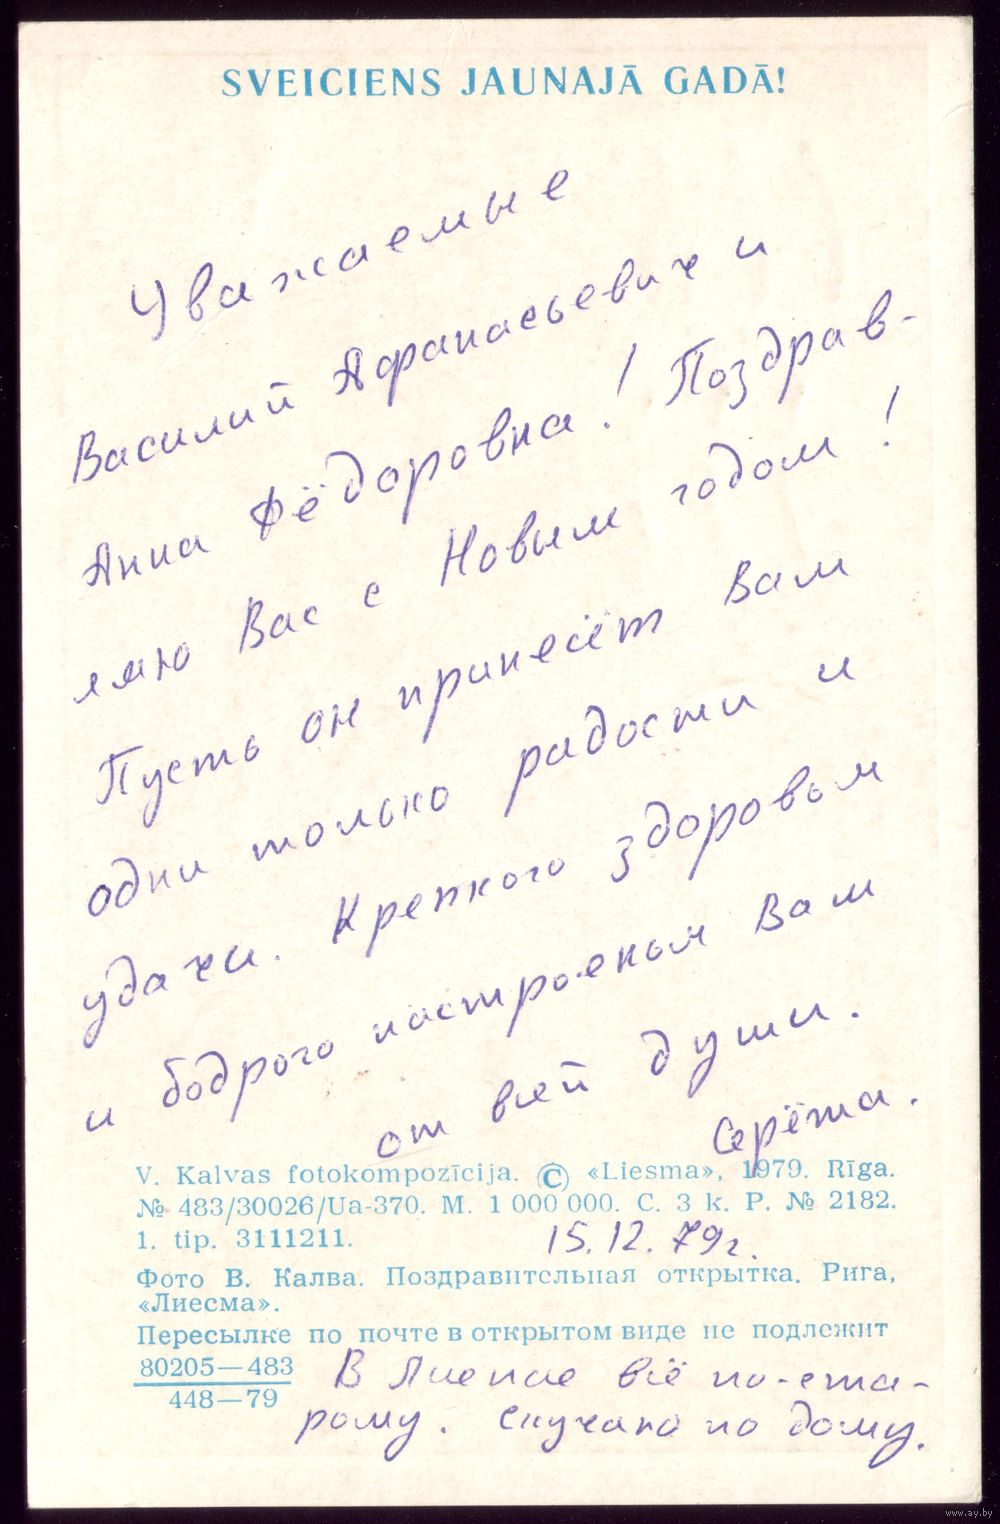 SVEICIENS JAUNAJĀ GADĀ!
Уважаемые
Василий Афанасьевич и
Анна Фёдоровна! Поздрав-
ляю Вас с Новым годом!
Пусть он принесёт Вам
одни только радости и
удачи. Крепкого здоровья
и бодрого настроенья Вам
от всей души.
Серёжа.
V. Kalvas fotokompozīcija. © «Liesma», 1979. Rīga.
№ 483/30026/Ua-370. M. 1 000 000. C. 3 k. P. № 2182.
1. tip. 3111211.
15.12.79г.
Фото В. Калва. Поздравительная открытка. Рига,
«Лиесма».
Пересылке по почте в открытом виде не подлежит
80205—483
448—79
В Лиепае всё по-ста-
рому. Скучаю по дому.
www.ay.by